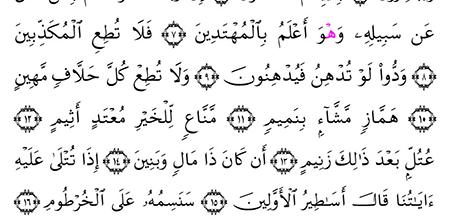 عَن سَبِيلِهِۦ وَهْوَ أَعْلَمُ بِٱلْمُهْتَدِينَ ٧ فَلَا تُطِعِ ٱلْمُكَذِّبِينَ
٨ وَدُّوا۟ لَوْ تُدْهِنُ فَيُدْهِنُونَ ٩ وَلَا تُطِعْ كُلَّ حَلَّافٍ مَّهِينٍ
١٠ هَمَّازٍ مَّشَّآءٍۭ بِنَمِيمٍ ١١ مَّنَّاعٍ لِّلْخَيْرِ مُعْتَدٍ أَثِيمٍ ١٢
عُتُلٍّۭ بَعْدَ ذَٰلِكَ زَنِيمٍ ١٣ أَن كَانَ ذَا مَالٍ وَبَنِينَ ١٤ إِذَا تُتْلَىٰ عَلَيْهِ
ءَايَـٰتُنَا قَالَ أَسَـٰطِيرُ ٱلْأَوَّلِينَ ١٥ سَنَسِمُهُۥ عَلَى ٱلْخُرْطُومِ ١٦